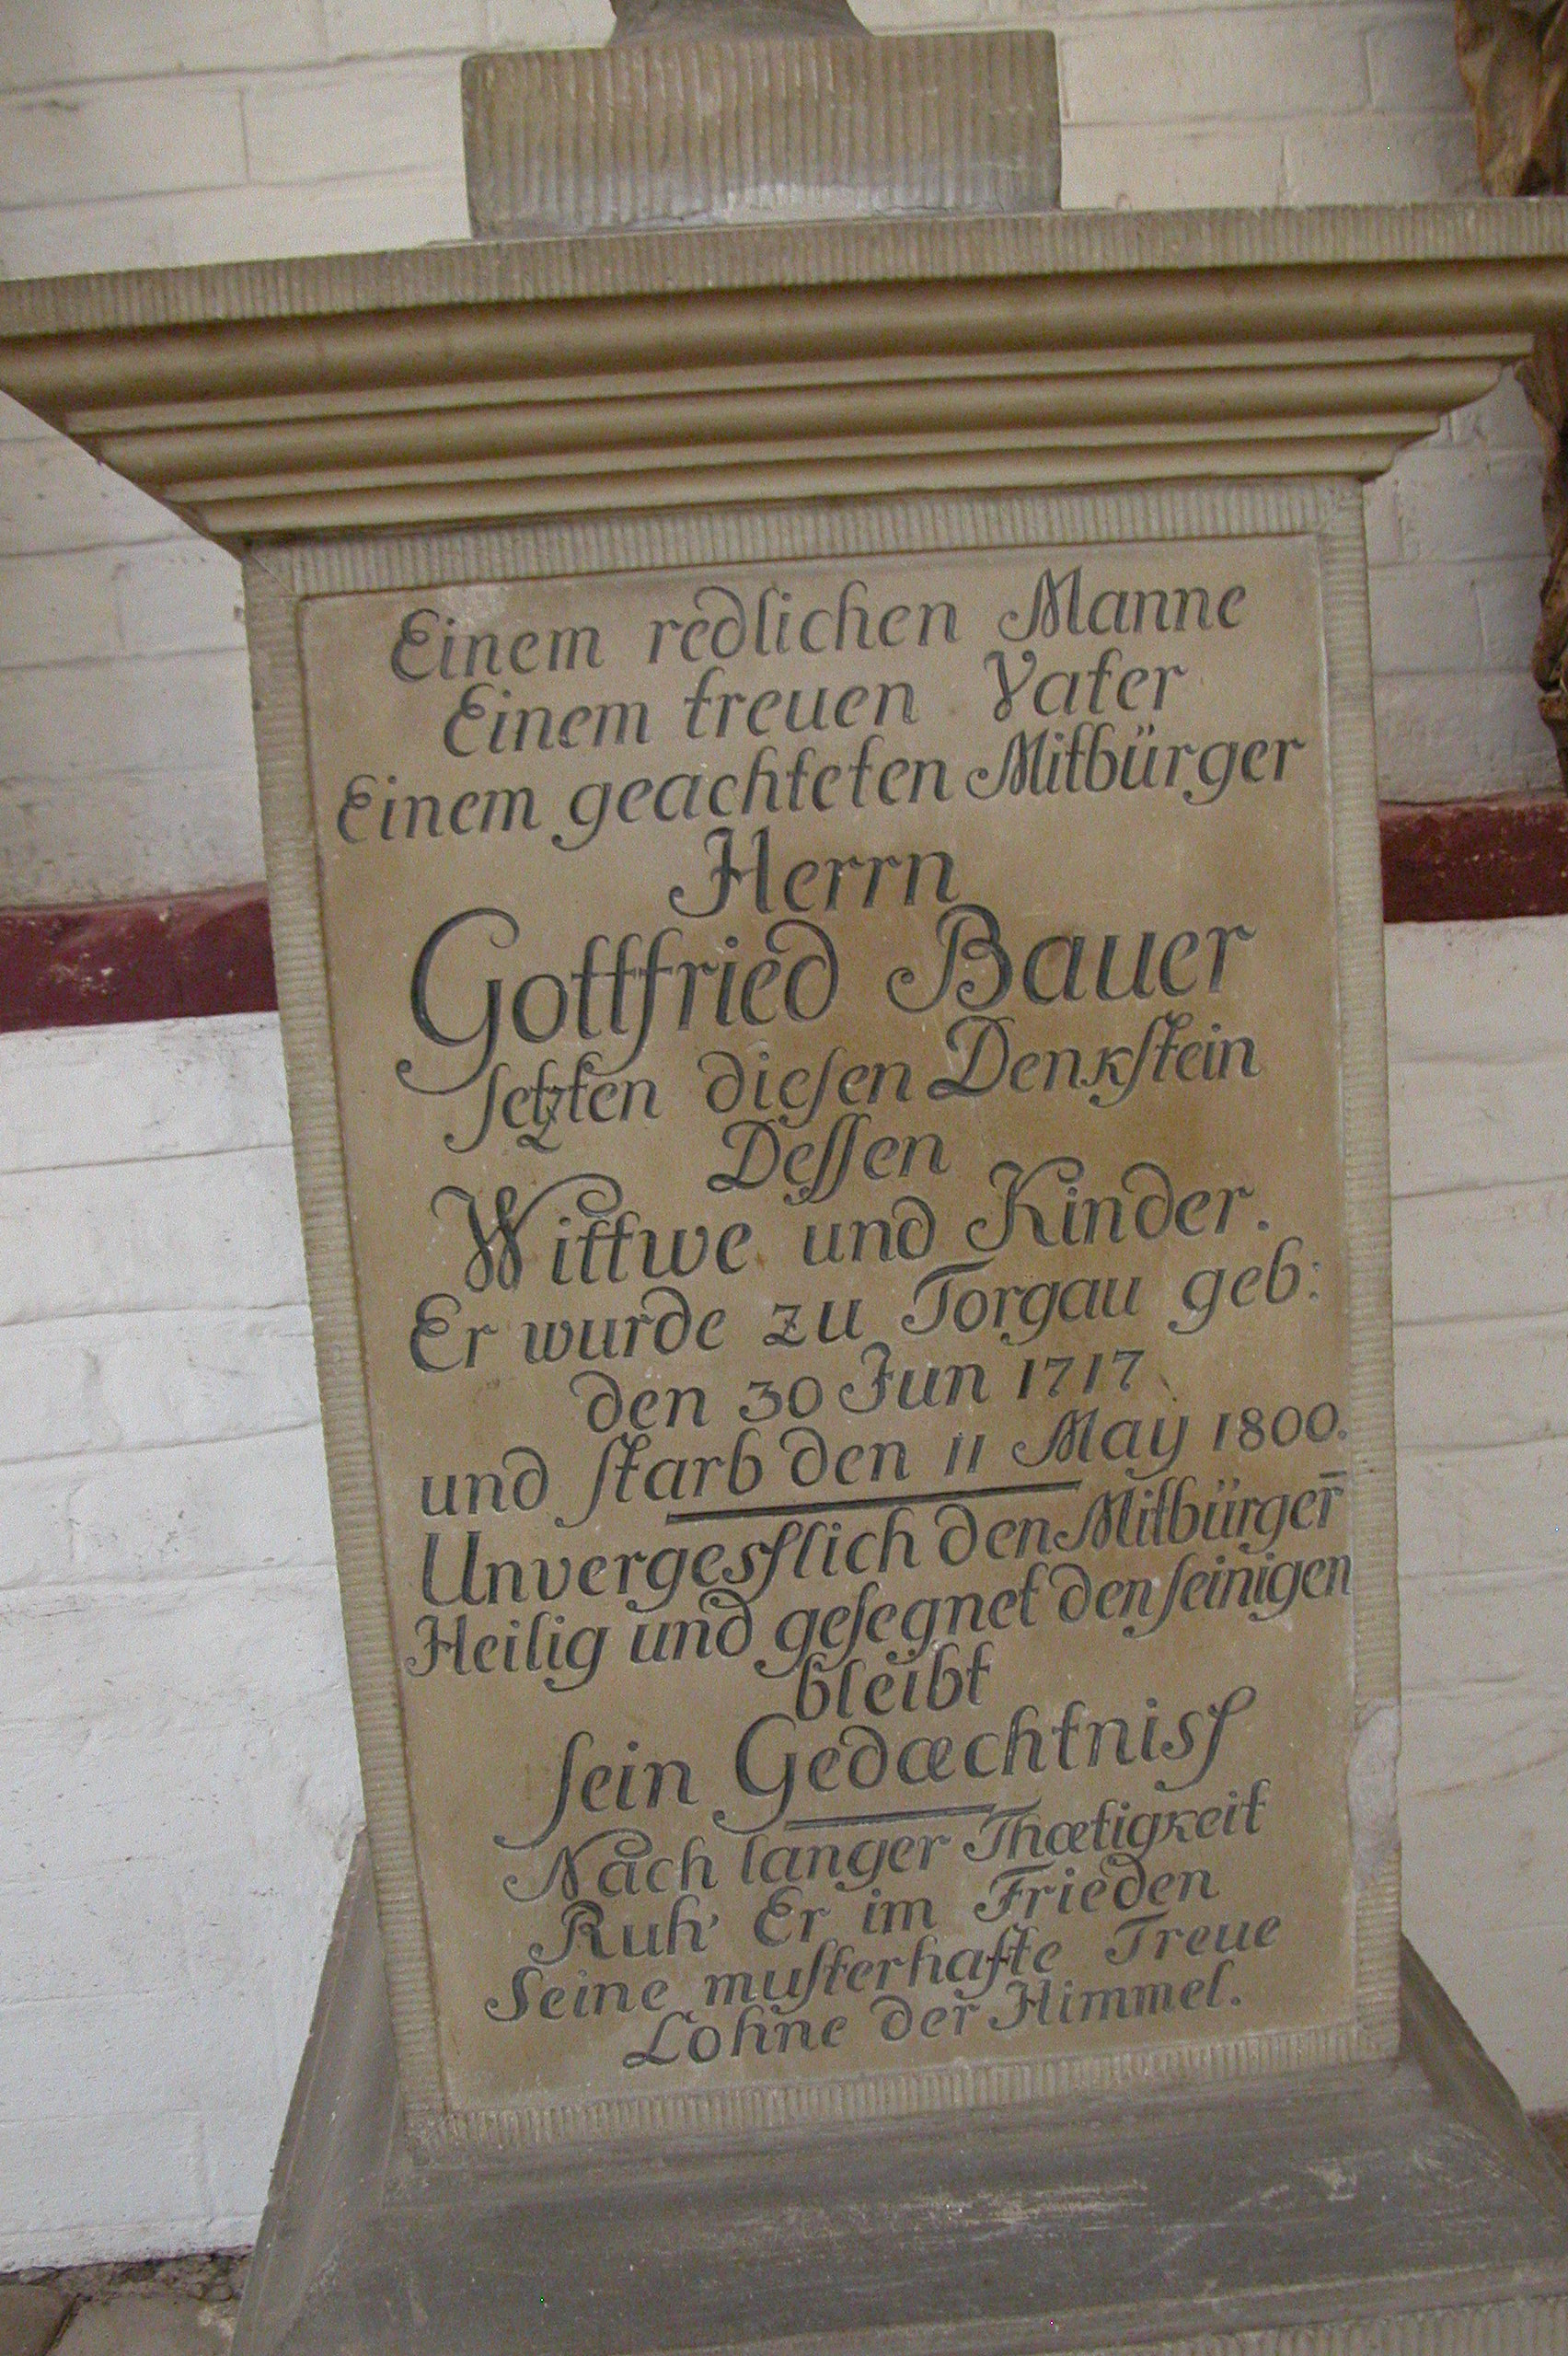 Einem redlichen Manne
Einem treuen Vater
Einem geachteten Mitbürger
Herrn
Gottfried Bauer
ſetzten dieſen Denkſtein
Deſſen
Wittwe und Kinder.
Er wurde zu Torgau geb:
den 30 Jun 1717
und ſtarb den 11 May 1800.
Unvergesſlich den Mitbürger̄
Heilig und geſegnet den ſeinigen
bleibt
ſein Gedæchtnisſ
Nach langer Thætigkeit
Ruh' Er im Frieden
Seine muſterhafte Treue
Lohne der Himmel.